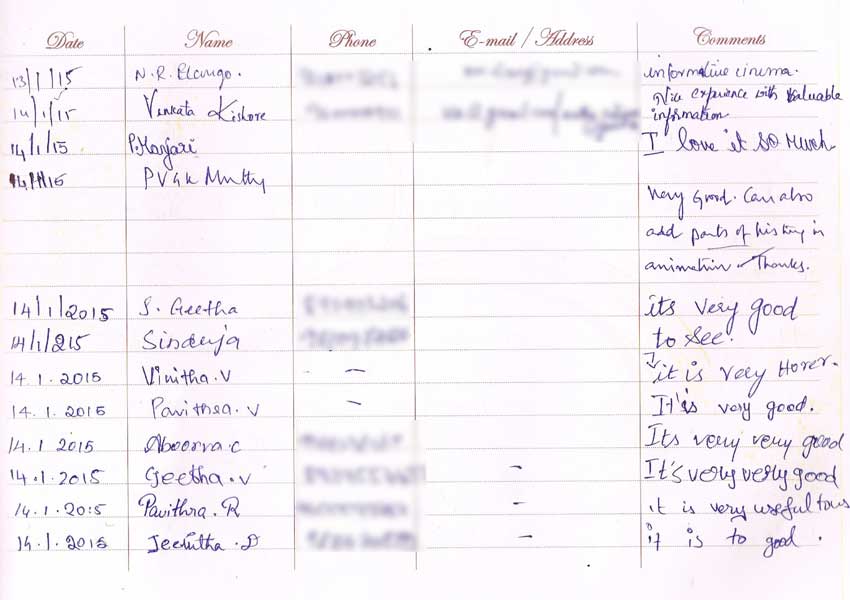 Date Name Phone E-mail / Address Comments
13/1/15 N.R. Elango. informative cinema.
14/1/15 Venkata Kishore Nice experience with valuable
information
14/1/15 P.Manjari I love it so much
14/1/15 PV4K Murthy
Very Good. Can also
add parts of history in
animation Thanks.
14/1/2015 S. Geetha its very good
14/1/215 Sinduja to see.
14.1.2015 Vinitha.V — it is very Horer.
14.1.2015 Pavithra.V — It is very good.
14.1.2015 Aboorva.C Its very very good
14.1.2015 Geetha.V — It's very very good
14.1.2015 Pavithra.R — it is very useful to us
14.1.2015 Jeevitha.D — it is to good.